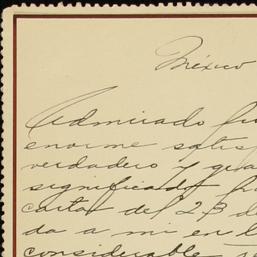 México
Admirado
enorme satis
verdadero y gra
significado
carta del 23 de
da a mi en l
considerable